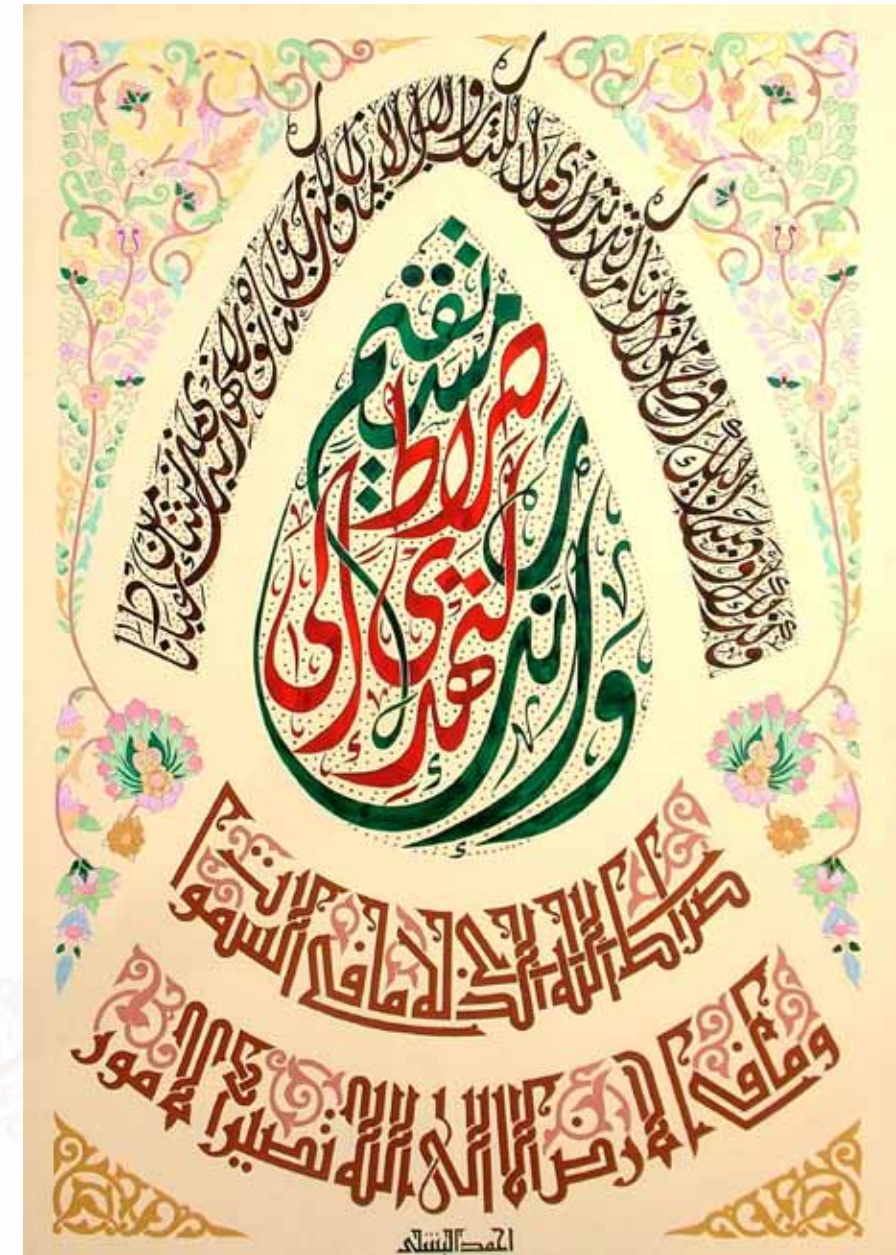 وكذلك أوحينا إليك روحا من أمرنا ما كنت تدري ما الكتاب ولا الإيمان ولكن جعلناه نورا نهدي به من نشاء من عبادنا
وإنك لتهدي إلى صراط مستقيم
صراط الله الذي له ما في السموات
وما في الأرض ألا إلى الله تصير الأمور